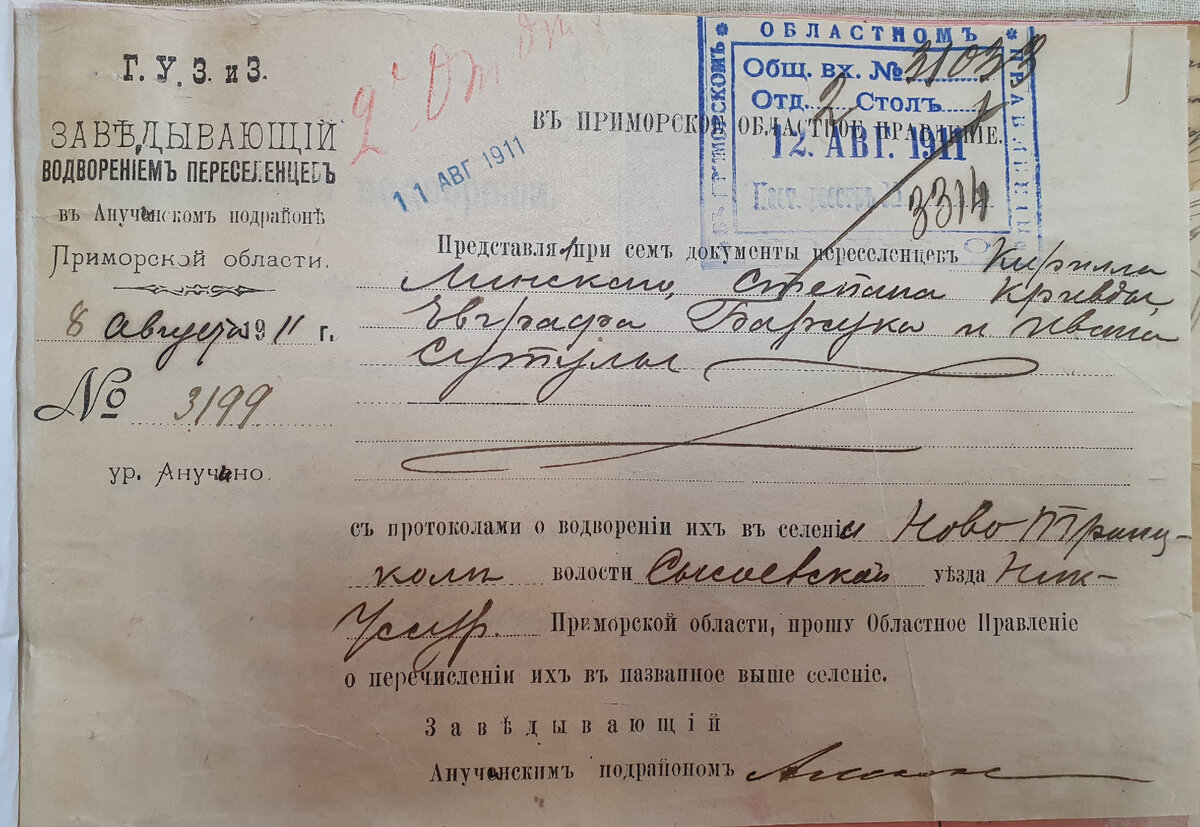 Г. У. З. и З.
ЗАВѢДЫВАЮЩІЙ
ВОДВОРЕНІЕМЪ ПЕРЕСЕЛЕНЦЕВЪ
въ Анученскомъ подрайонѣ
Приморской области.
8 Августа 1911 г.
№ 3199
ур. Анучино.
2 От
11 АВГ 1911
ВЪ ПРИМОРСКОМЪ ОБЛАСТНОМЪ ПРАВЛЕНІИ
Общ. вх. № 31033
Отд. 2 Столъ 1
12. АВГ. 1911
3314
ВЪ ПРИМОРСКОЕ ОБЛАСТНОЕ ПРАВЛЕНІЕ.
Представляя при семъ документы переселенцевъ Кирилла
Минскаго, Степана Кривды,
Евграфа Барсука и Ивана
Сутулы
съ протоколами о водвореніи ихъ въ селеніи Ново Троиц-
комъ волости Сысоевской уѣзда Ник-
Уссур. Приморской области, прошу Областное Правленіе
о перечисленіи ихъ въ названное выше селеніе.
Завѣдывающій
Анученскимъ подрайономъ